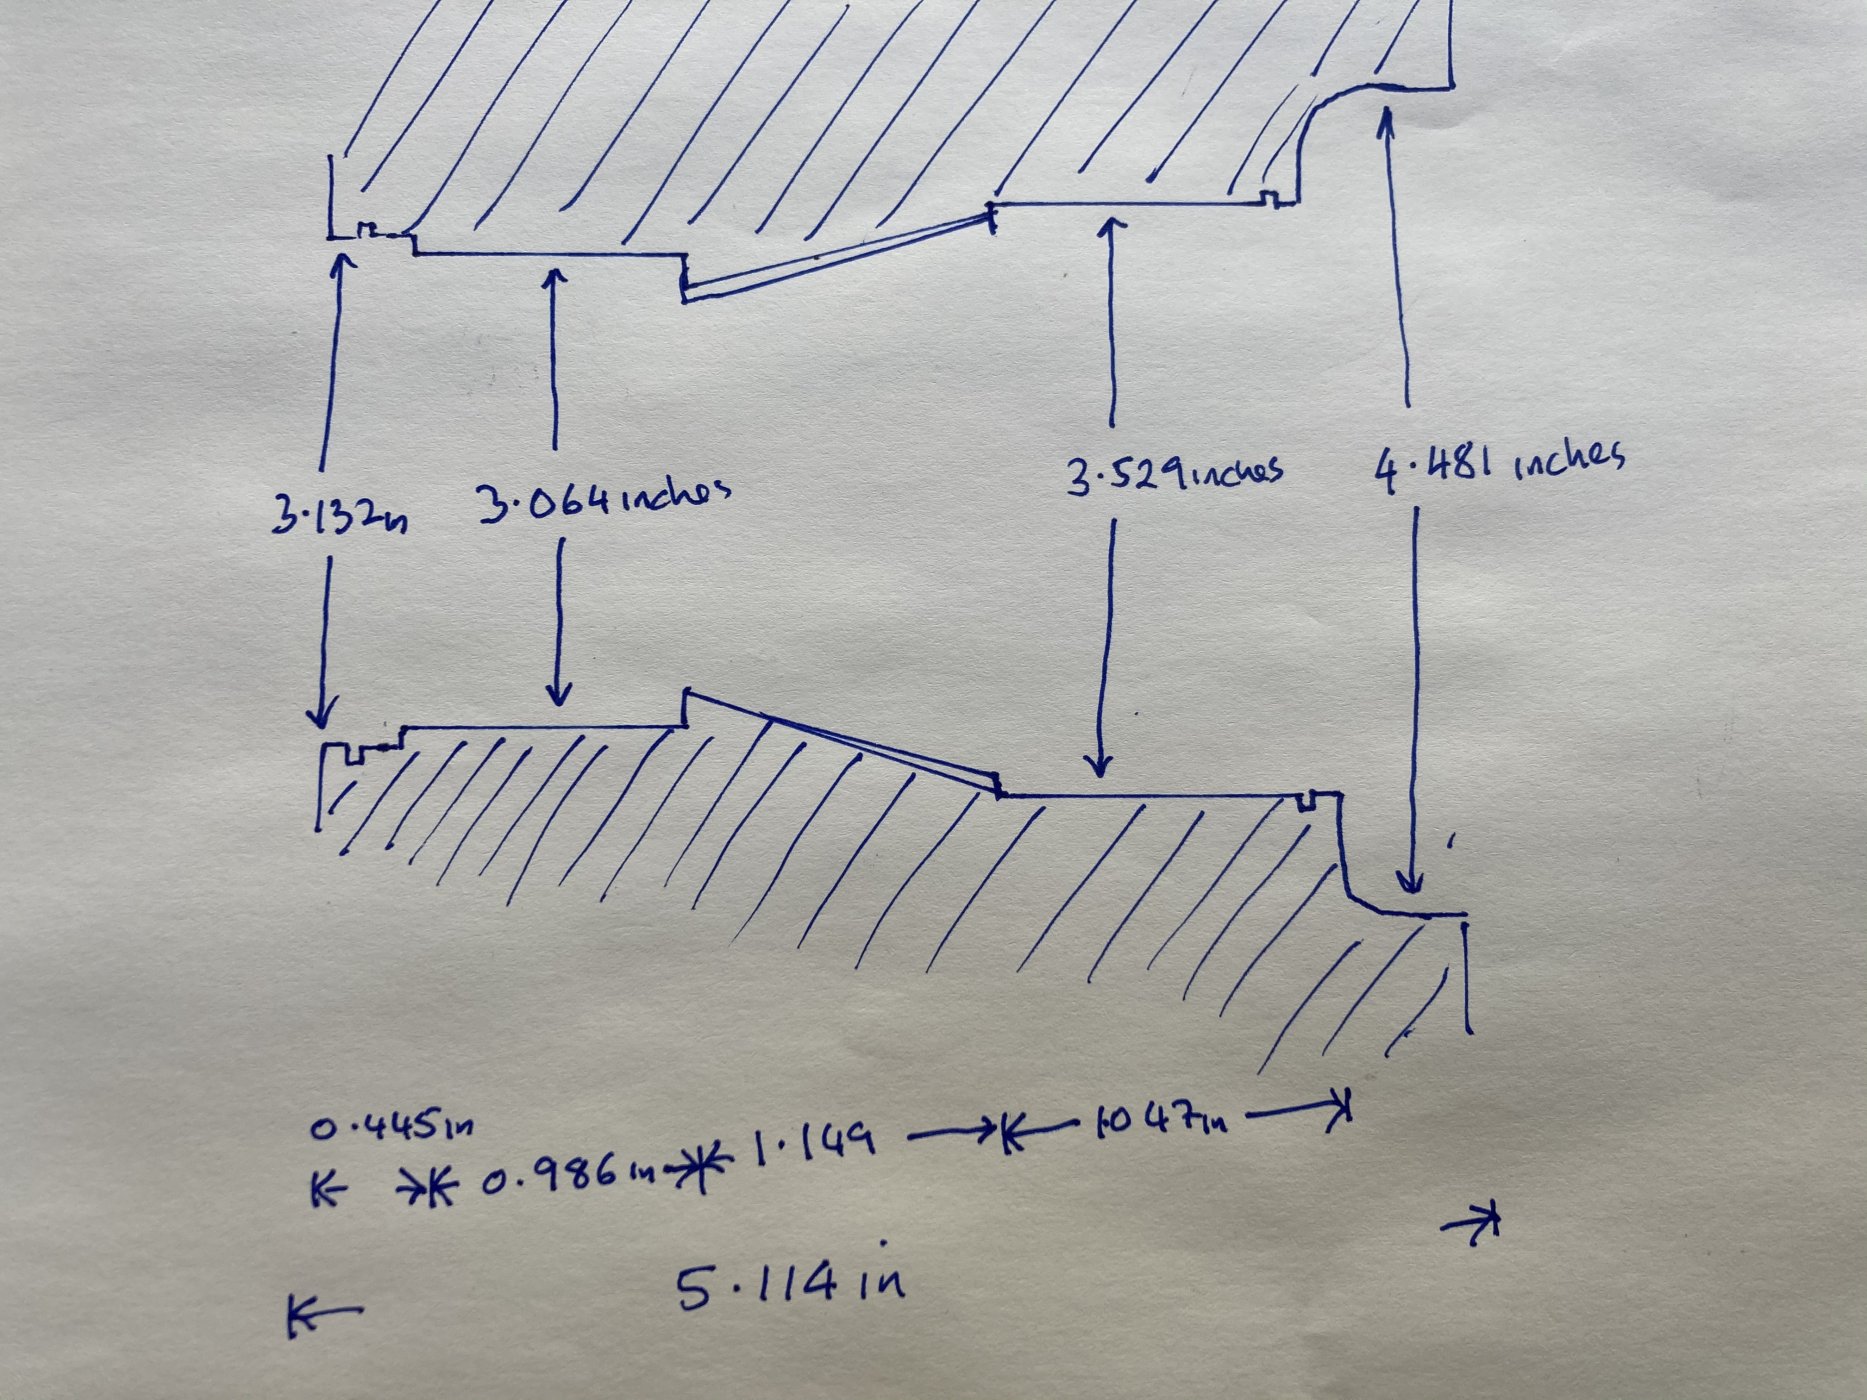 3.132in
3.064 inches
3.529 inches
4.481 inches
0.445in
0.986 in
1.149
1.047in
5.114 in